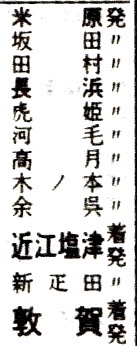 米原発
坂田〃
田村〃
長浜〃
虎姫〃
河毛〃
高月〃
木ノ本〃
余呉〃
近江塩津着発
新疋田〃
敦賀着